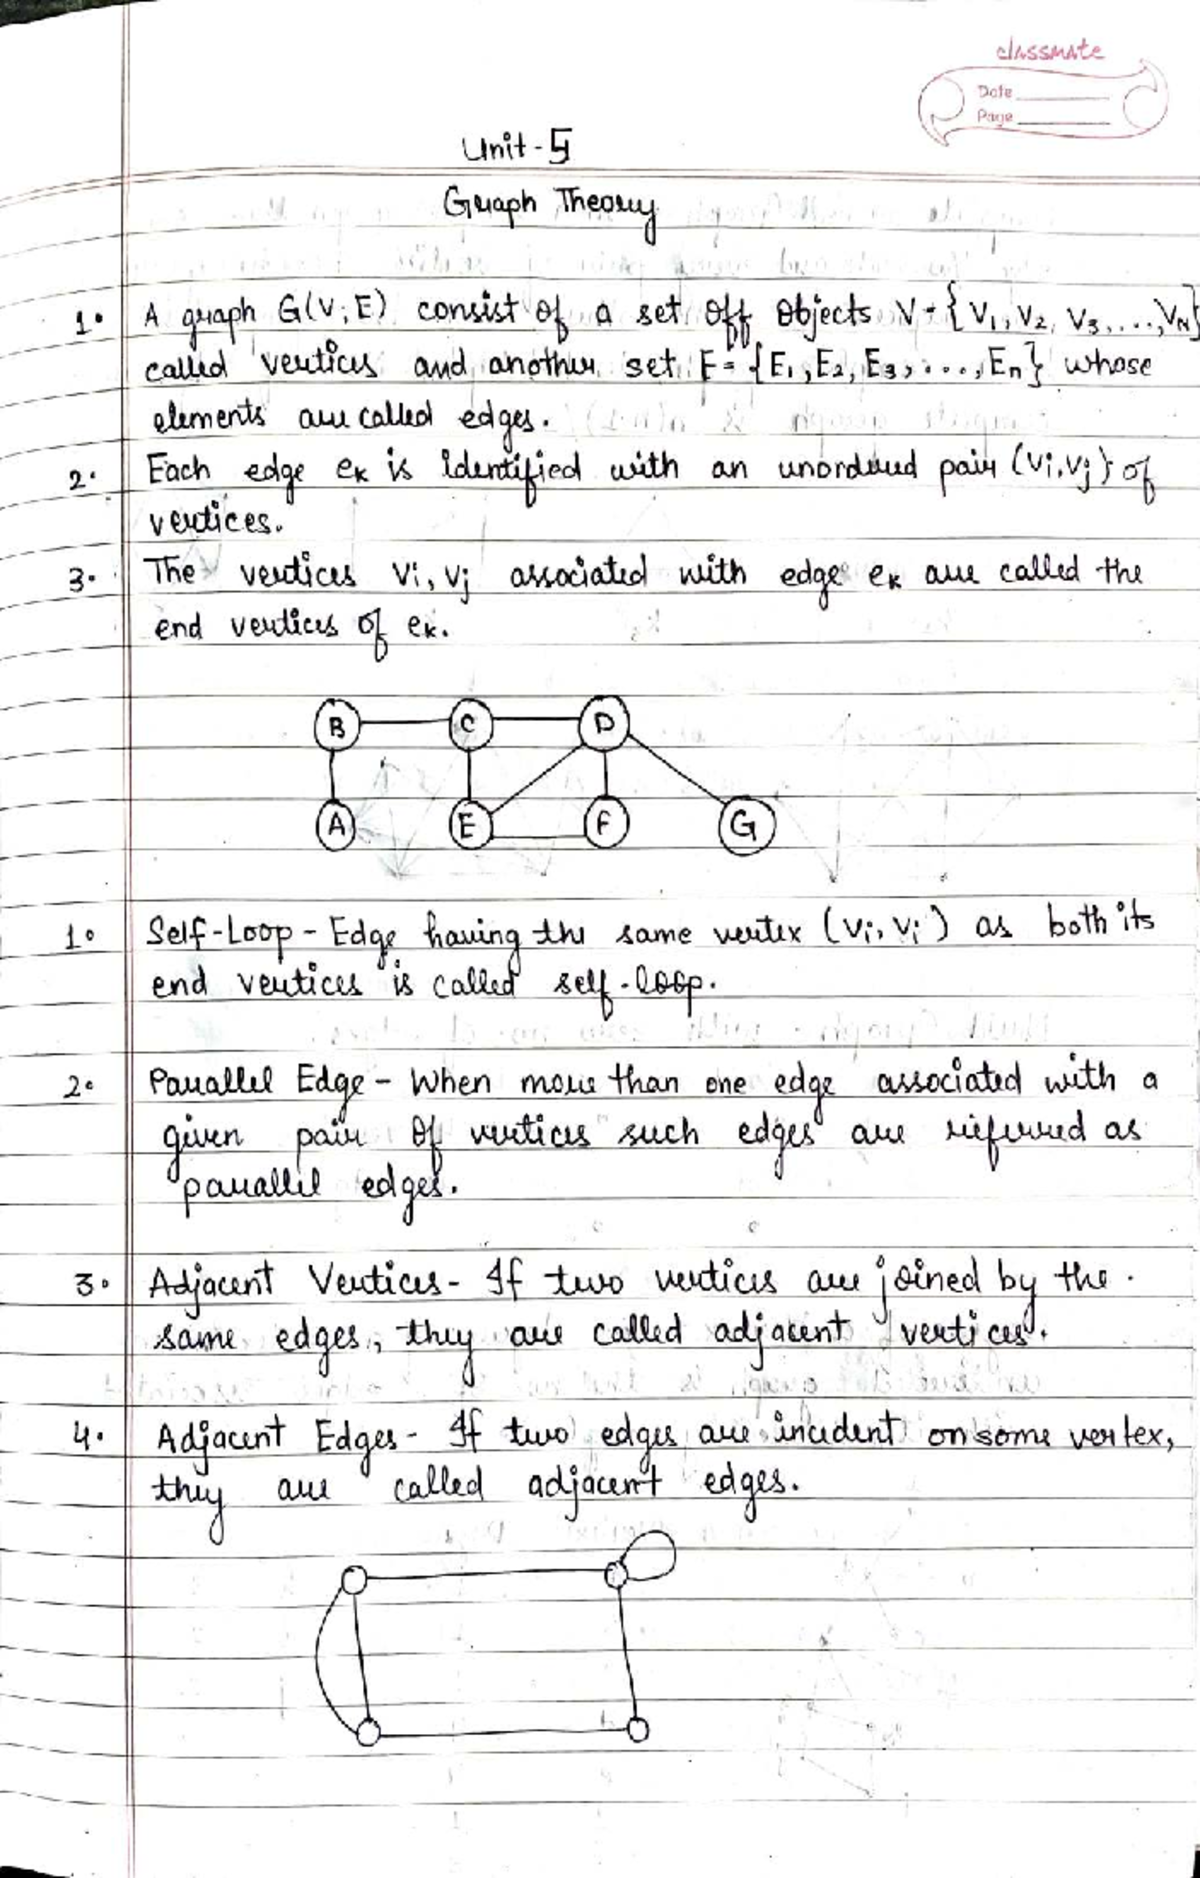 classmate
Date
Page
Unit-5
Graph Theory
1. A graph G(V, E) consist of a set off objects V = {V1, V2, V3, ..., VN}
called vertices and another set E = {E1, E2, E3, ..., En} whose
elements are called edges.
2. Each edge ek is identified with an unordered pair (vi, vj} of
vertices.
3. The vertices vi, vj associated with edge ek are called the
end vertices of ek.
B C D
A E F G
1. Self-Loop - Edge having the same vertex (vi, vi) as both its
end vertices is called self-loop.
2. Parallel Edge - When more than one edge associated with a
given pair of vertices such edges are referred as
parallel edges.
3. Adjacent Vertices - If two vertices are joined by the
same edges, they are called adjacent vertices.
4. Adjacent Edges - If two edges are incident on some vertex,
they are called adjacent edges.